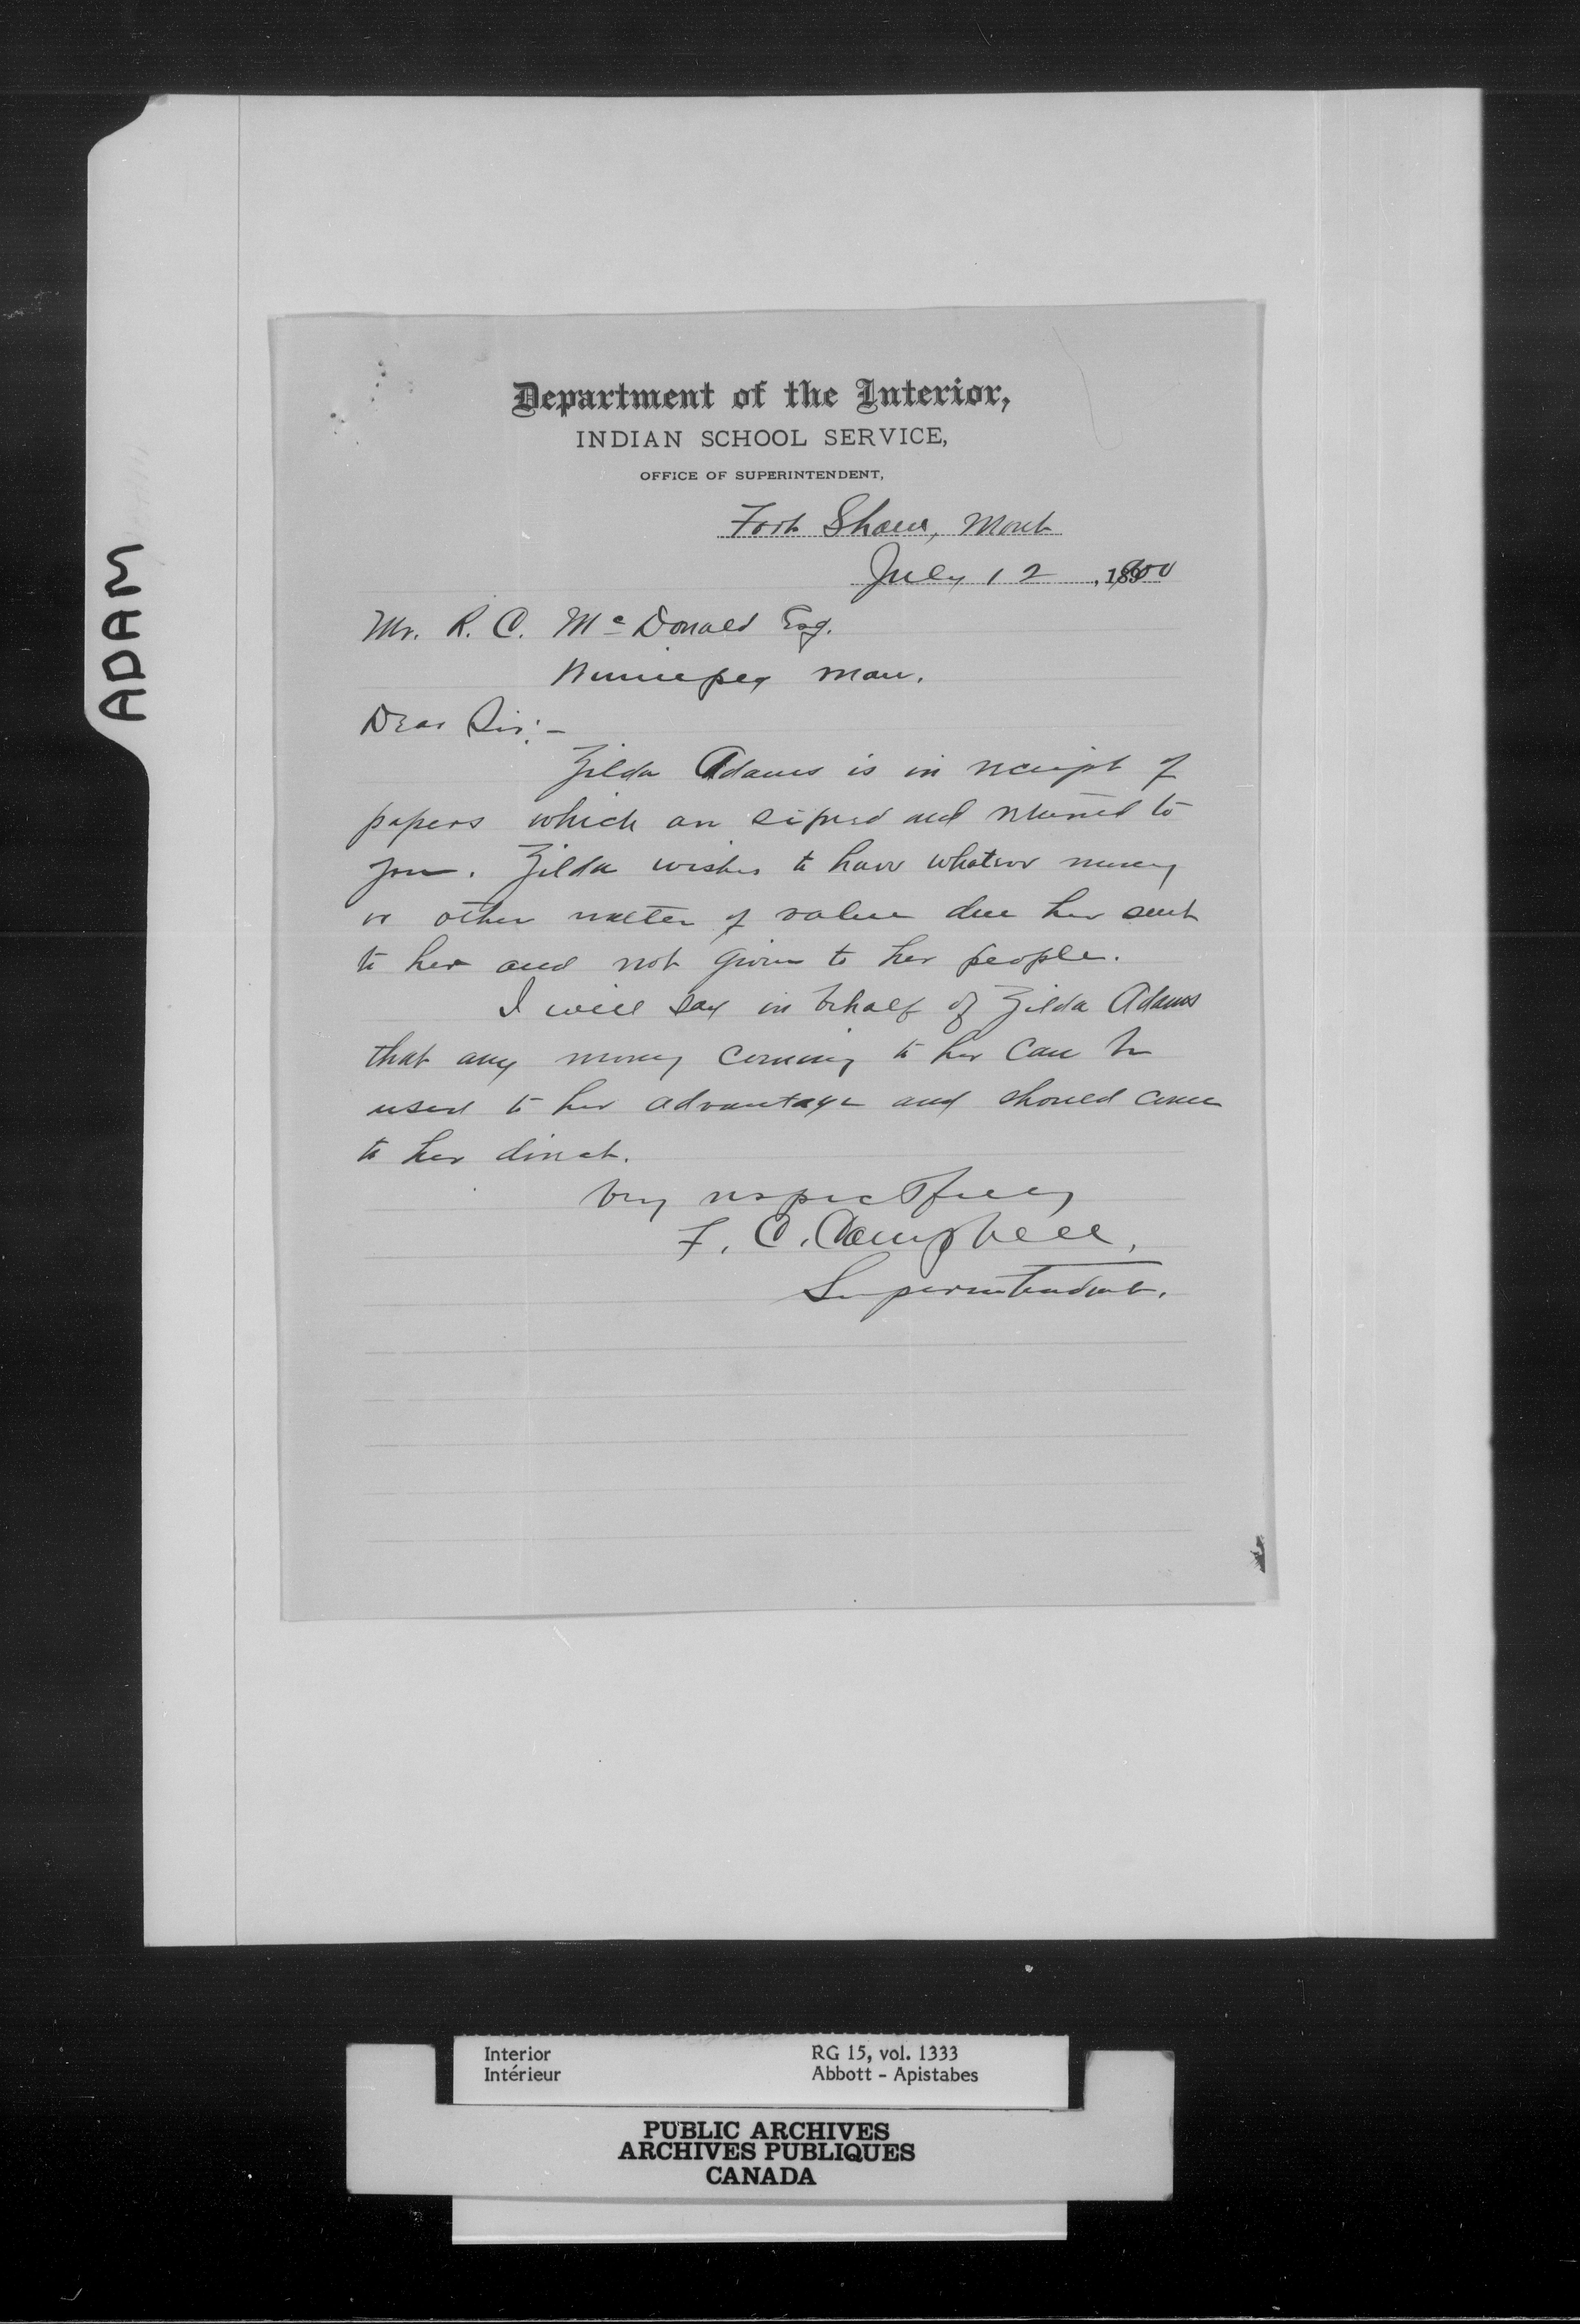 ADAM
Department of the Interior,
INDIAN SCHOOL SERVICE,
OFFICE OF SUPERINTENDENT,
Fort Shaw, Mont
July 12, 1900
Mr. R. C. McDonald Esq.
Winnipeg Man.
Dear Sir:-
Zilda Adams is in receipt of
papers which are signed and returned to
you. Zilda wishes to have whatever money
or other matter of value due her sent
to her and not given to her people.
I will say in behalf of Zilda Adams
that any money coming to her can be
used to her advantage and should come
to her direct.
Very respectfully
F. C. Campbell,
Superintendent.
Interior
Intérieur
RG 15, vol. 1333
Abbott - Apistabes
PUBLIC ARCHIVES
ARCHIVES PUBLIQUES
CANADA